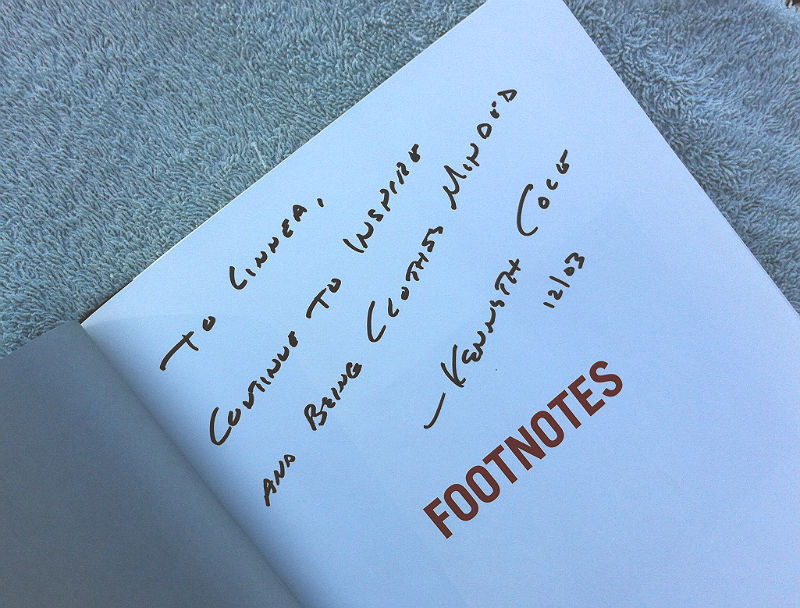 TO LINNEA,
CONTINUE TO INSPIRE
AND BEING CLOTHES MINDED
— KENNETH COLE
12/03
FOOTNOTES